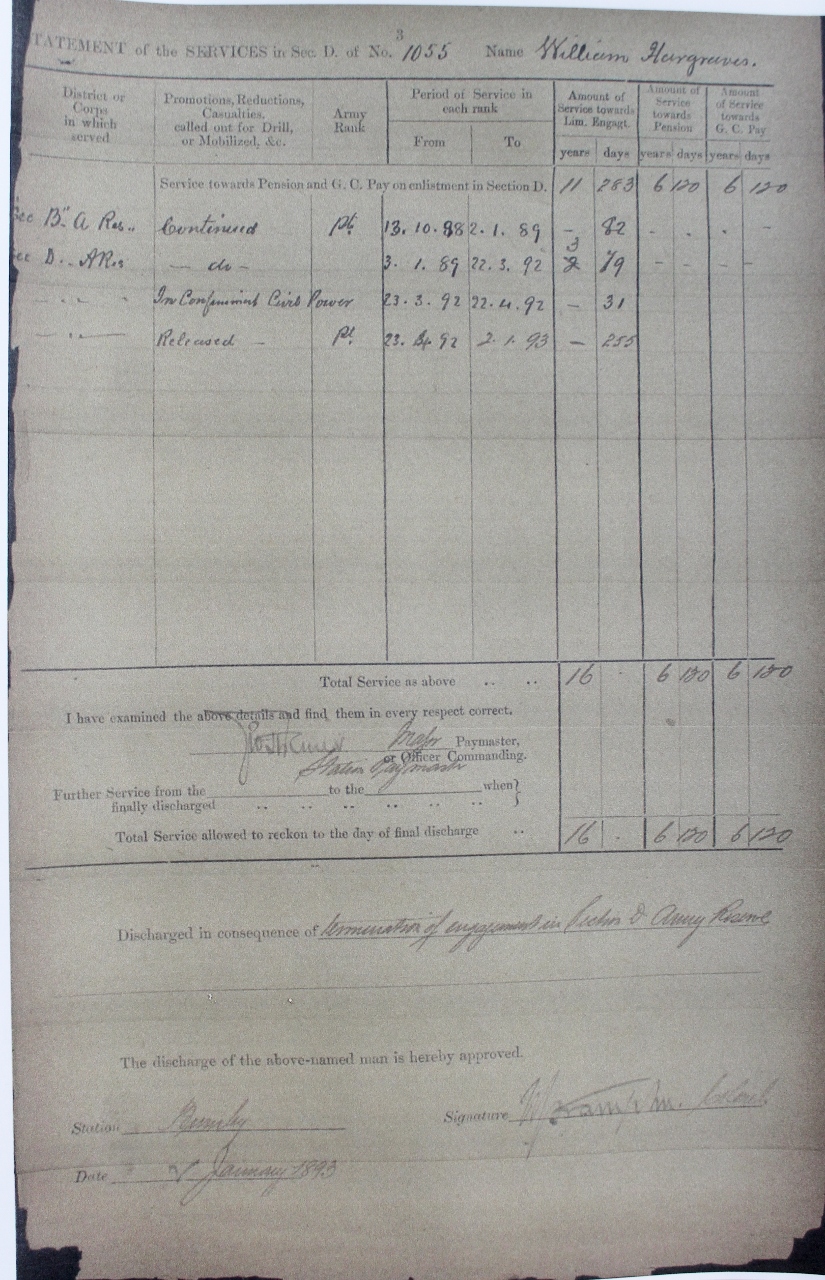 3
TATEMENT of the SERVICES in Sec. D. of No. 1055 Name William Hargraves.
District or Corps in which served
Promotions, Reductions, Casualties, called out for Drill, or Mobilized, &c.
Army Rank
Period of Service in each rank
From To
Amount of Service towards Lim. Engagt.
Amount of Service towards Pension
Amount of Service towards G. C. Pay
years days years days years days
Service towards Pension and G. C. Pay on enlistment in Section D. 11 283 6 120 6 120
Sec B" A Res.. Continued Pte 13. 10. 88 2. 1. 89 - 82 - . . -
Sec D.. A Res - do - 3. 1. 89 22. 3. 92 3 79 - - - -
- " - " In Confinement Civil Power 23. 3. 92 22. 4. 92 - 31
- " - Released - Pt. 23. 4. 92 2. 1. 93 - 255
Total Service as above .. .. 16 . 6 120 6 120
I have examined the above details and find them in every respect correct.
Major Paymaster,
or Officer Commanding.
Station Paymaster
Further Service from the to the when }
finally discharged .. .. .. .. .. .. }
Total Service allowed to reckon to the day of final discharge .. 16 . 6 120 6 120
Discharged in consequence of termination of engagement in Section D Army Reserve
The discharge of the above-named man is hereby approved.
Station Signature Colonel
Date January 1893